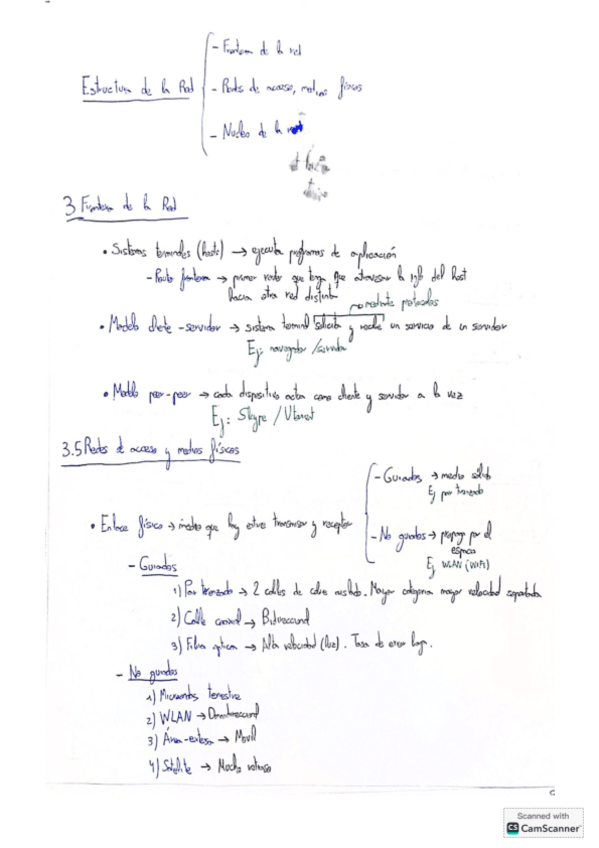 - Frontera de la red
Estructura de la Red
- Redes de acceso, medios físicos
- Nucleo de la red
3 Frontera de la Red
• Sistemas terminales (hosts) → ejecuta programas de aplicación
- Router frontera → primer router que tenga que atravesar la info del Host
hacia otra red distinta
mediante protocolos
• Modelo cliente-servidor → sistema terminal solicita y recibe un servicio de un servidor
Ej: navegador/servidor
• Modelo peer-peer → cada dispositivo actua como cliente y servidor a la vez
Ej: Skype / Utorrent
3.5 Redes de acceso y medios físicos
- Guiados → medio sólido
Ej par trenzado
• Enlace físico → medio que hay entre transmisor y receptor
- No guiados → propaga por el
espacio
Ej WLAN (WIFI)
- Guiados
1) Par trenzado → 2 cables de cobre aislado. Mayor categoria mayor velocidad soportada
2) Cable coaxial → Bidireccional
3) Fibra optica → Alta velocidad (luz). Tasa de error baja.
- No guiados
1) Microondas terrestre
2) WLAN → Omnidireccional
3) Área-extesa → Movil
4) Satelite → Mucho retraso
Scanned with
CS CamScanner